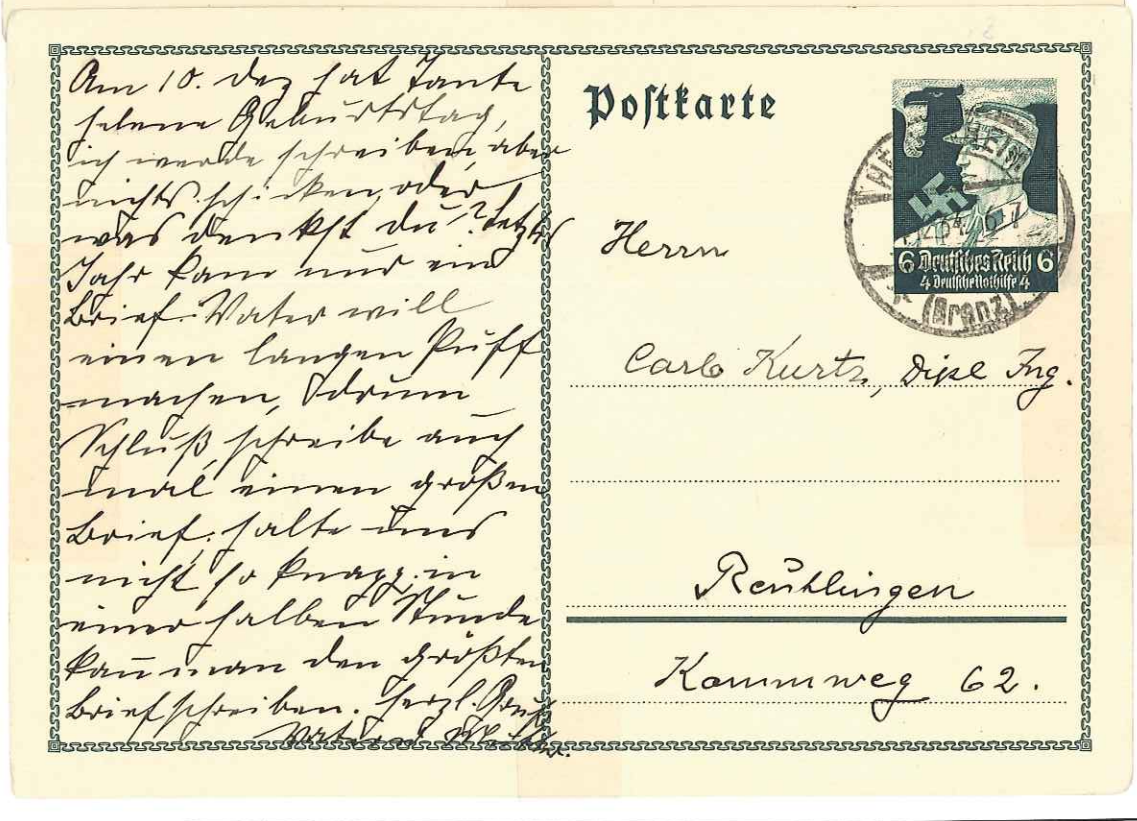 Am 10. Dez hat Tante
Helene Geburtstag,
ich werde schreiben, aber
nichts schicken, oder
was denkst du? Letztes
Jahr kam nur ein
Brief. Vater will
einen langen Puff
machen, drum
Schluß, schreibe auch
mal einen großen
Brief, halte uns
nicht so knapp, in
einer halben Stunde
kann man den größten
Brief schreiben. Herzl. Gruß
Vater u Mutter.
Postkarte
6 Deutsches Reich 6
4 Deutsche Nothilfe 4
(Brenz)
Herrn
Carl Kurtz, Dipl Ing.
Reutlingen
Kammweg 62.